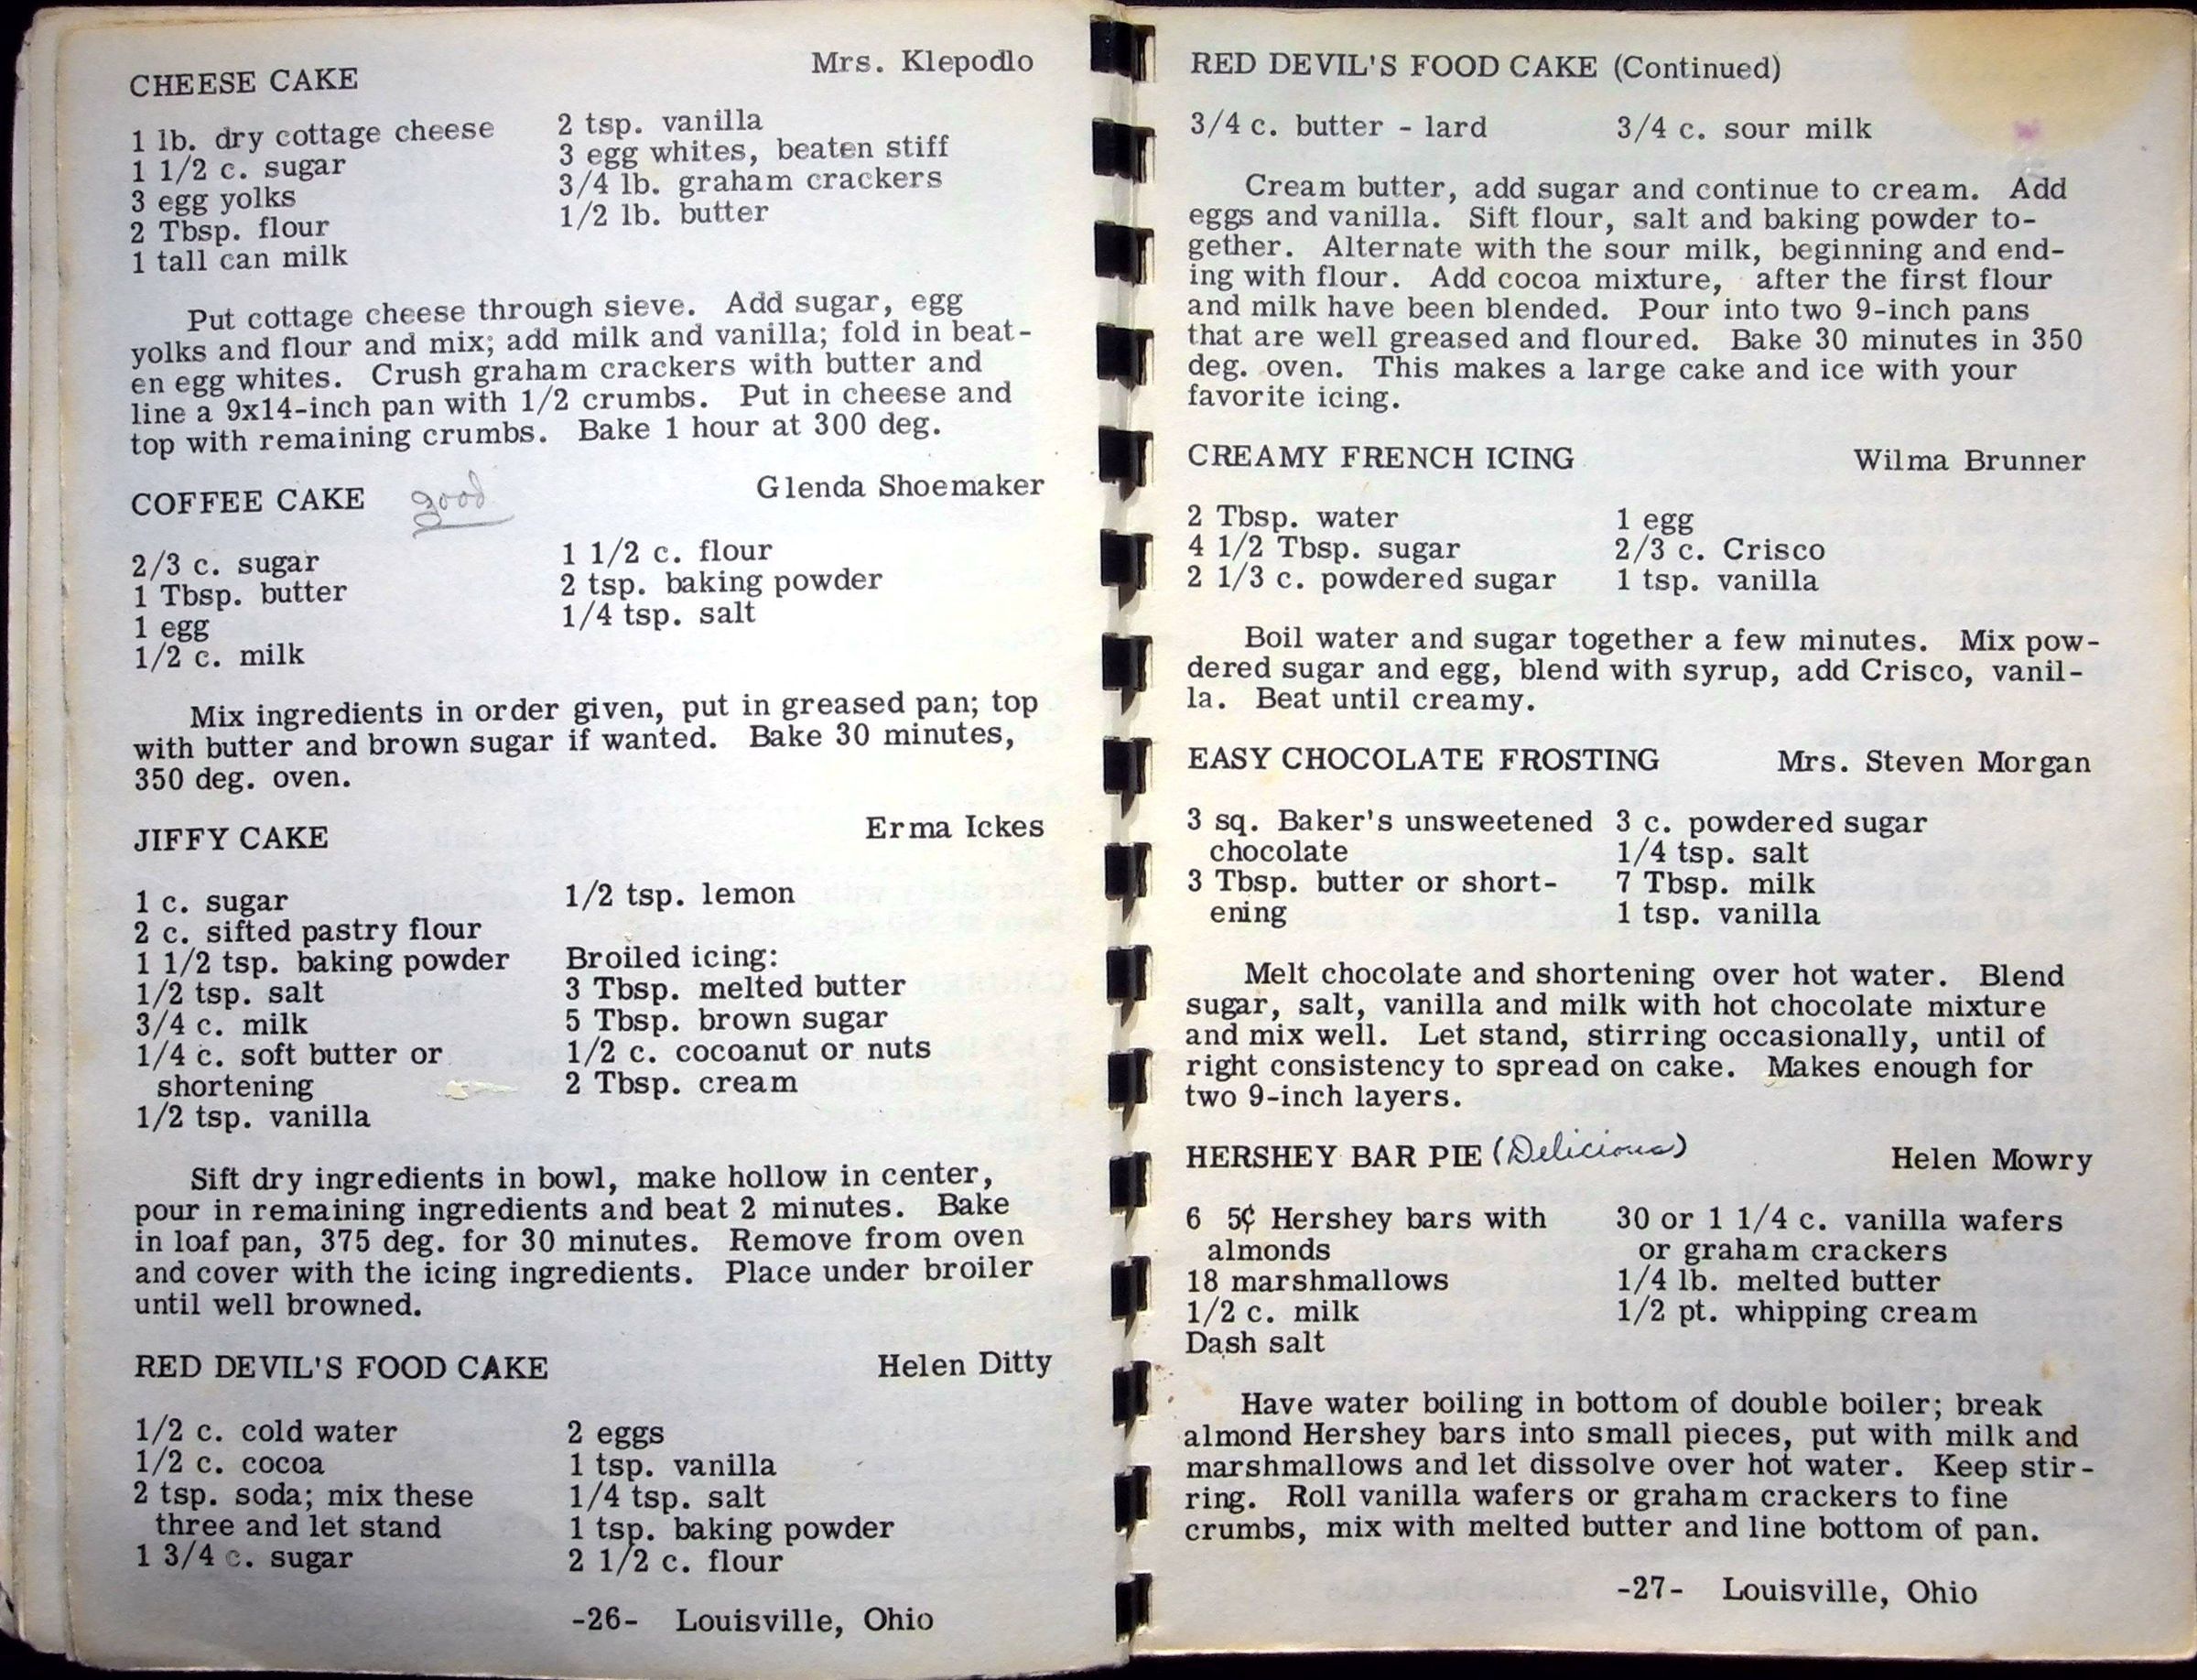 CHEESE CAKE Mrs. Klepodlo
1 lb. dry cottage cheese
1 1/2 c. sugar
3 egg yolks
2 Tbsp. flour
1 tall can milk
2 tsp. vanilla
3 egg whites, beaten stiff
3/4 lb. graham crackers
1/2 lb. butter
Put cottage cheese through sieve. Add sugar, egg
yolks and flour and mix; add milk and vanilla; fold in beat-
en egg whites. Crush graham crackers with butter and
line a 9x14-inch pan with 1/2 crumbs. Put in cheese and
top with remaining crumbs. Bake 1 hour at 300 deg.
COFFEE CAKE good Glenda Shoemaker
2/3 c. sugar
1 Tbsp. butter
1 egg
1/2 c. milk
1 1/2 c. flour
2 tsp. baking powder
1/4 tsp. salt
Mix ingredients in order given, put in greased pan; top
with butter and brown sugar if wanted. Bake 30 minutes,
350 deg. oven.
JIFFY CAKE Erma Ickes
1 c. sugar
2 c. sifted pastry flour
1 1/2 tsp. baking powder
1/2 tsp. salt
3/4 c. milk
1/4 c. soft butter or
shortening
1/2 tsp. vanilla
1/2 tsp. lemon
Broiled icing:
3 Tbsp. melted butter
5 Tbsp. brown sugar
1/2 c. cocoanut or nuts
2 Tbsp. cream
Sift dry ingredients in bowl, make hollow in center,
pour in remaining ingredients and beat 2 minutes. Bake
in loaf pan, 375 deg. for 30 minutes. Remove from oven
and cover with the icing ingredients. Place under broiler
until well browned.
RED DEVIL'S FOOD CAKE Helen Ditty
1/2 c. cold water
1/2 c. cocoa
2 tsp. soda; mix these
three and let stand
1 3/4 c. sugar
2 eggs
1 tsp. vanilla
1/4 tsp. salt
1 tsp. baking powder
2 1/2 c. flour
-26- Louisville, Ohio
RED DEVIL'S FOOD CAKE (Continued)
3/4 c. butter - lard
3/4 c. sour milk
Cream butter, add sugar and continue to cream. Add
eggs and vanilla. Sift flour, salt and baking powder to-
gether. Alternate with the sour milk, beginning and end-
ing with flour. Add cocoa mixture, after the first flour
and milk have been blended. Pour into two 9-inch pans
that are well greased and floured. Bake 30 minutes in 350
deg. oven. This makes a large cake and ice with your
favorite icing.
CREAMY FRENCH ICING Wilma Brunner
2 Tbsp. water
4 1/2 Tbsp. sugar
2 1/3 c. powdered sugar
1 egg
2/3 c. Crisco
1 tsp. vanilla
Boil water and sugar together a few minutes. Mix pow-
dered sugar and egg, blend with syrup, add Crisco, vanil-
la. Beat until creamy.
EASY CHOCOLATE FROSTING Mrs. Steven Morgan
3 sq. Baker's unsweetened
chocolate
3 Tbsp. butter or short-
ening
3 c. powdered sugar
1/4 tsp. salt
7 Tbsp. milk
1 tsp. vanilla
Melt chocolate and shortening over hot water. Blend
sugar, salt, vanilla and milk with hot chocolate mixture
and mix well. Let stand, stirring occasionally, until of
right consistency to spread on cake. Makes enough for
two 9-inch layers.
HERSHEY BAR PIE (Delicious) Helen Mowry
6 5¢ Hershey bars with
almonds
18 marshmallows
1/2 c. milk
Dash salt
30 or 1 1/4 c. vanilla wafers
or graham crackers
1/4 lb. melted butter
1/2 pt. whipping cream
Have water boiling in bottom of double boiler; break
almond Hershey bars into small pieces, put with milk and
marshmallows and let dissolve over hot water. Keep stir-
ring. Roll vanilla wafers or graham crackers to fine
crumbs, mix with melted butter and line bottom of pan.
-27- Louisville, Ohio